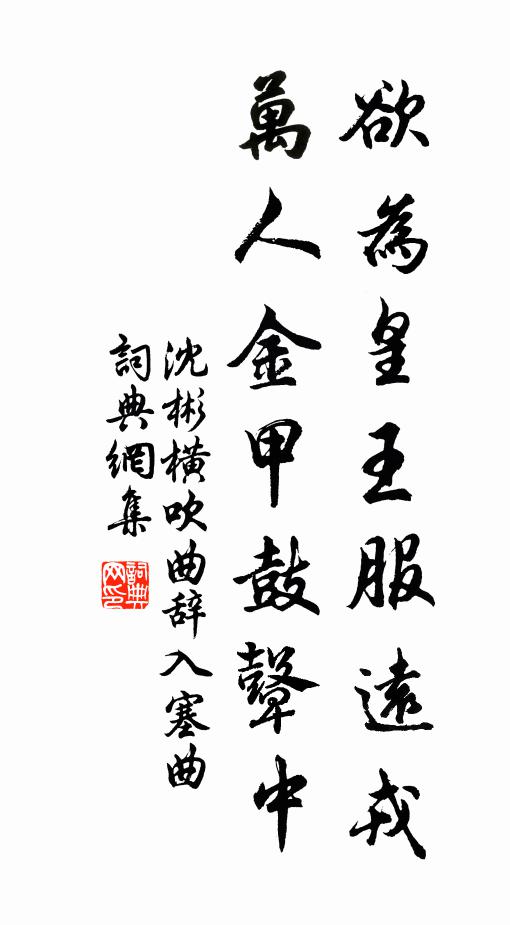 欲為皇王服遠戎
萬人金甲鼓鼙中
沈彬橫吹曲辞入塞曲
詞典網集
詞典网印